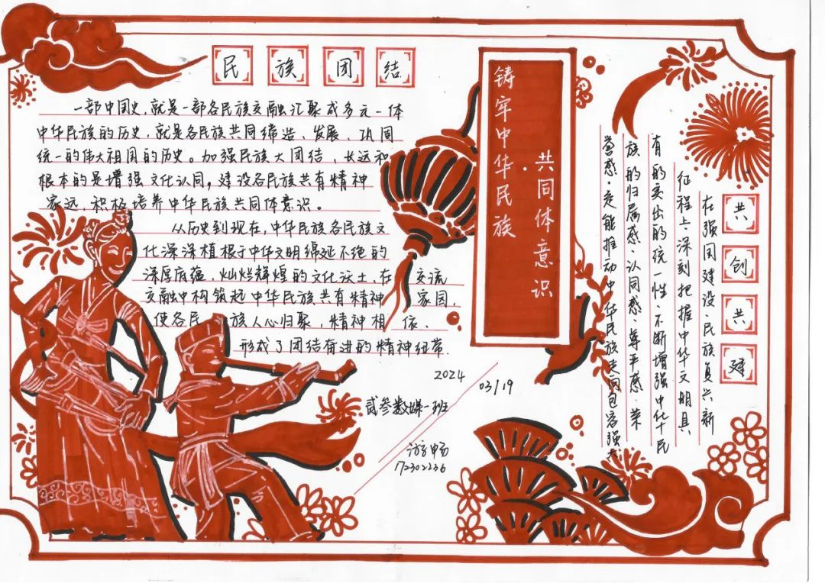 民族团结
一部中国史,就是一部各民族交融汇聚成多元一体
中华民族的历史,就是各民族共同缔造、发展、巩固
统一的伟大祖国的历史。加强民族大团结,长远和
根本的是增强文化认同,建设各民族共有精神
家远,积极培养中华民族共同体意识。
从历史到现在,中华民族各民族文
化深深植根于中华文明绵延不绝的
深厚底蕴,灿烂辉煌的文化沃土,在交流
交融中构筑起中华民族共有精神家园,
使各民族人心归聚,精神相依,
形成了团结奋进的精神纽带.
铸牢中华民族
共同体意识
共创共建
在强国建设、民族复兴新
征程上,深刻把握中华文明具
有的突出的统一性,不断增强中华民
族的归属感、认同感、尊严感、荣
誉感,定能推动中华民族走向包容强
2024
03/19
贰叁数媒一班
游畅
72302236